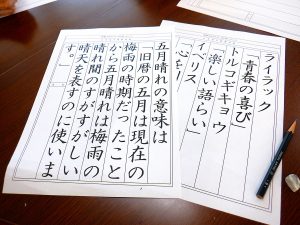 五月晴れの意味は
「旧暦の五月は現在の
梅雨の時期だったこと
から五月晴れは梅雨の
晴れ間のすがすがしい
晴天を表すのに使いま
す。」
ライラック
「青春の喜び」
トルコギキョウ
「楽しい語らい」
イベリス